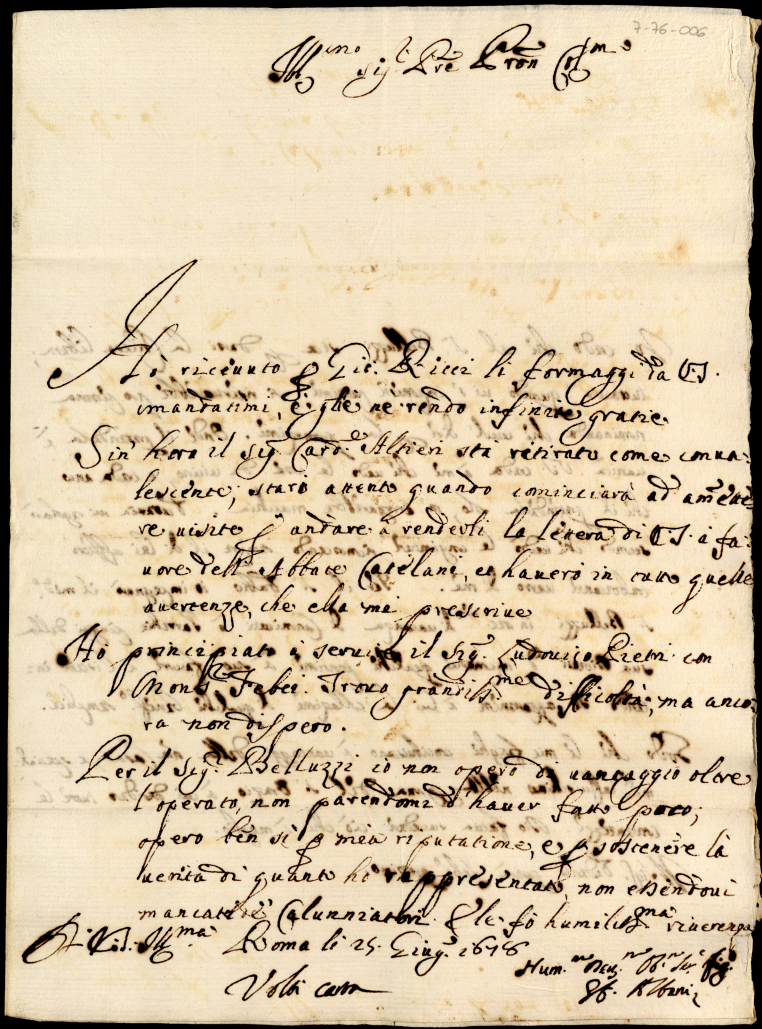 7-76-006
Ill.mo Sig.r Prē Prōn Col.mo
Hò riceuuto p Gio. Ricci li formaggi da V.S.
mandatimi, e gliè ne rendo infinite gratie
Sin' hora il Sig.r Card.e Altieri stà retirato come conua-
lescente; starò attento quando cominciarà ad amette-
re uisite p andare à renderli la lettera di V.S. à fa-
uore dell' Abbate Catelani, et hauerò in tutto quelle
auertenze, che ella mi prescriue
Hò principiato à seruire il Sig.r Ludouico Pietri con
Mons.r Febei. Trouo grandiss.me difficoltà, ma anco-
ra non dispero.
Per il Sig.r Belluzzi io non opero di uantaggio oltre
l'operato, non parendomi d'hauer fatto poco;
opero ben sì p mea riputatione, e p sostenere la
uerità di quanto hò rappresentato non essendoui
mancati i Calunniatori. E le fò humiliss.ma riuerenza
Di V.S. Ill.ma Roma li 25. Giug.o 1676
Hum.mo Deu.mo Ob.mo Ser.e
Albani
Volti carta